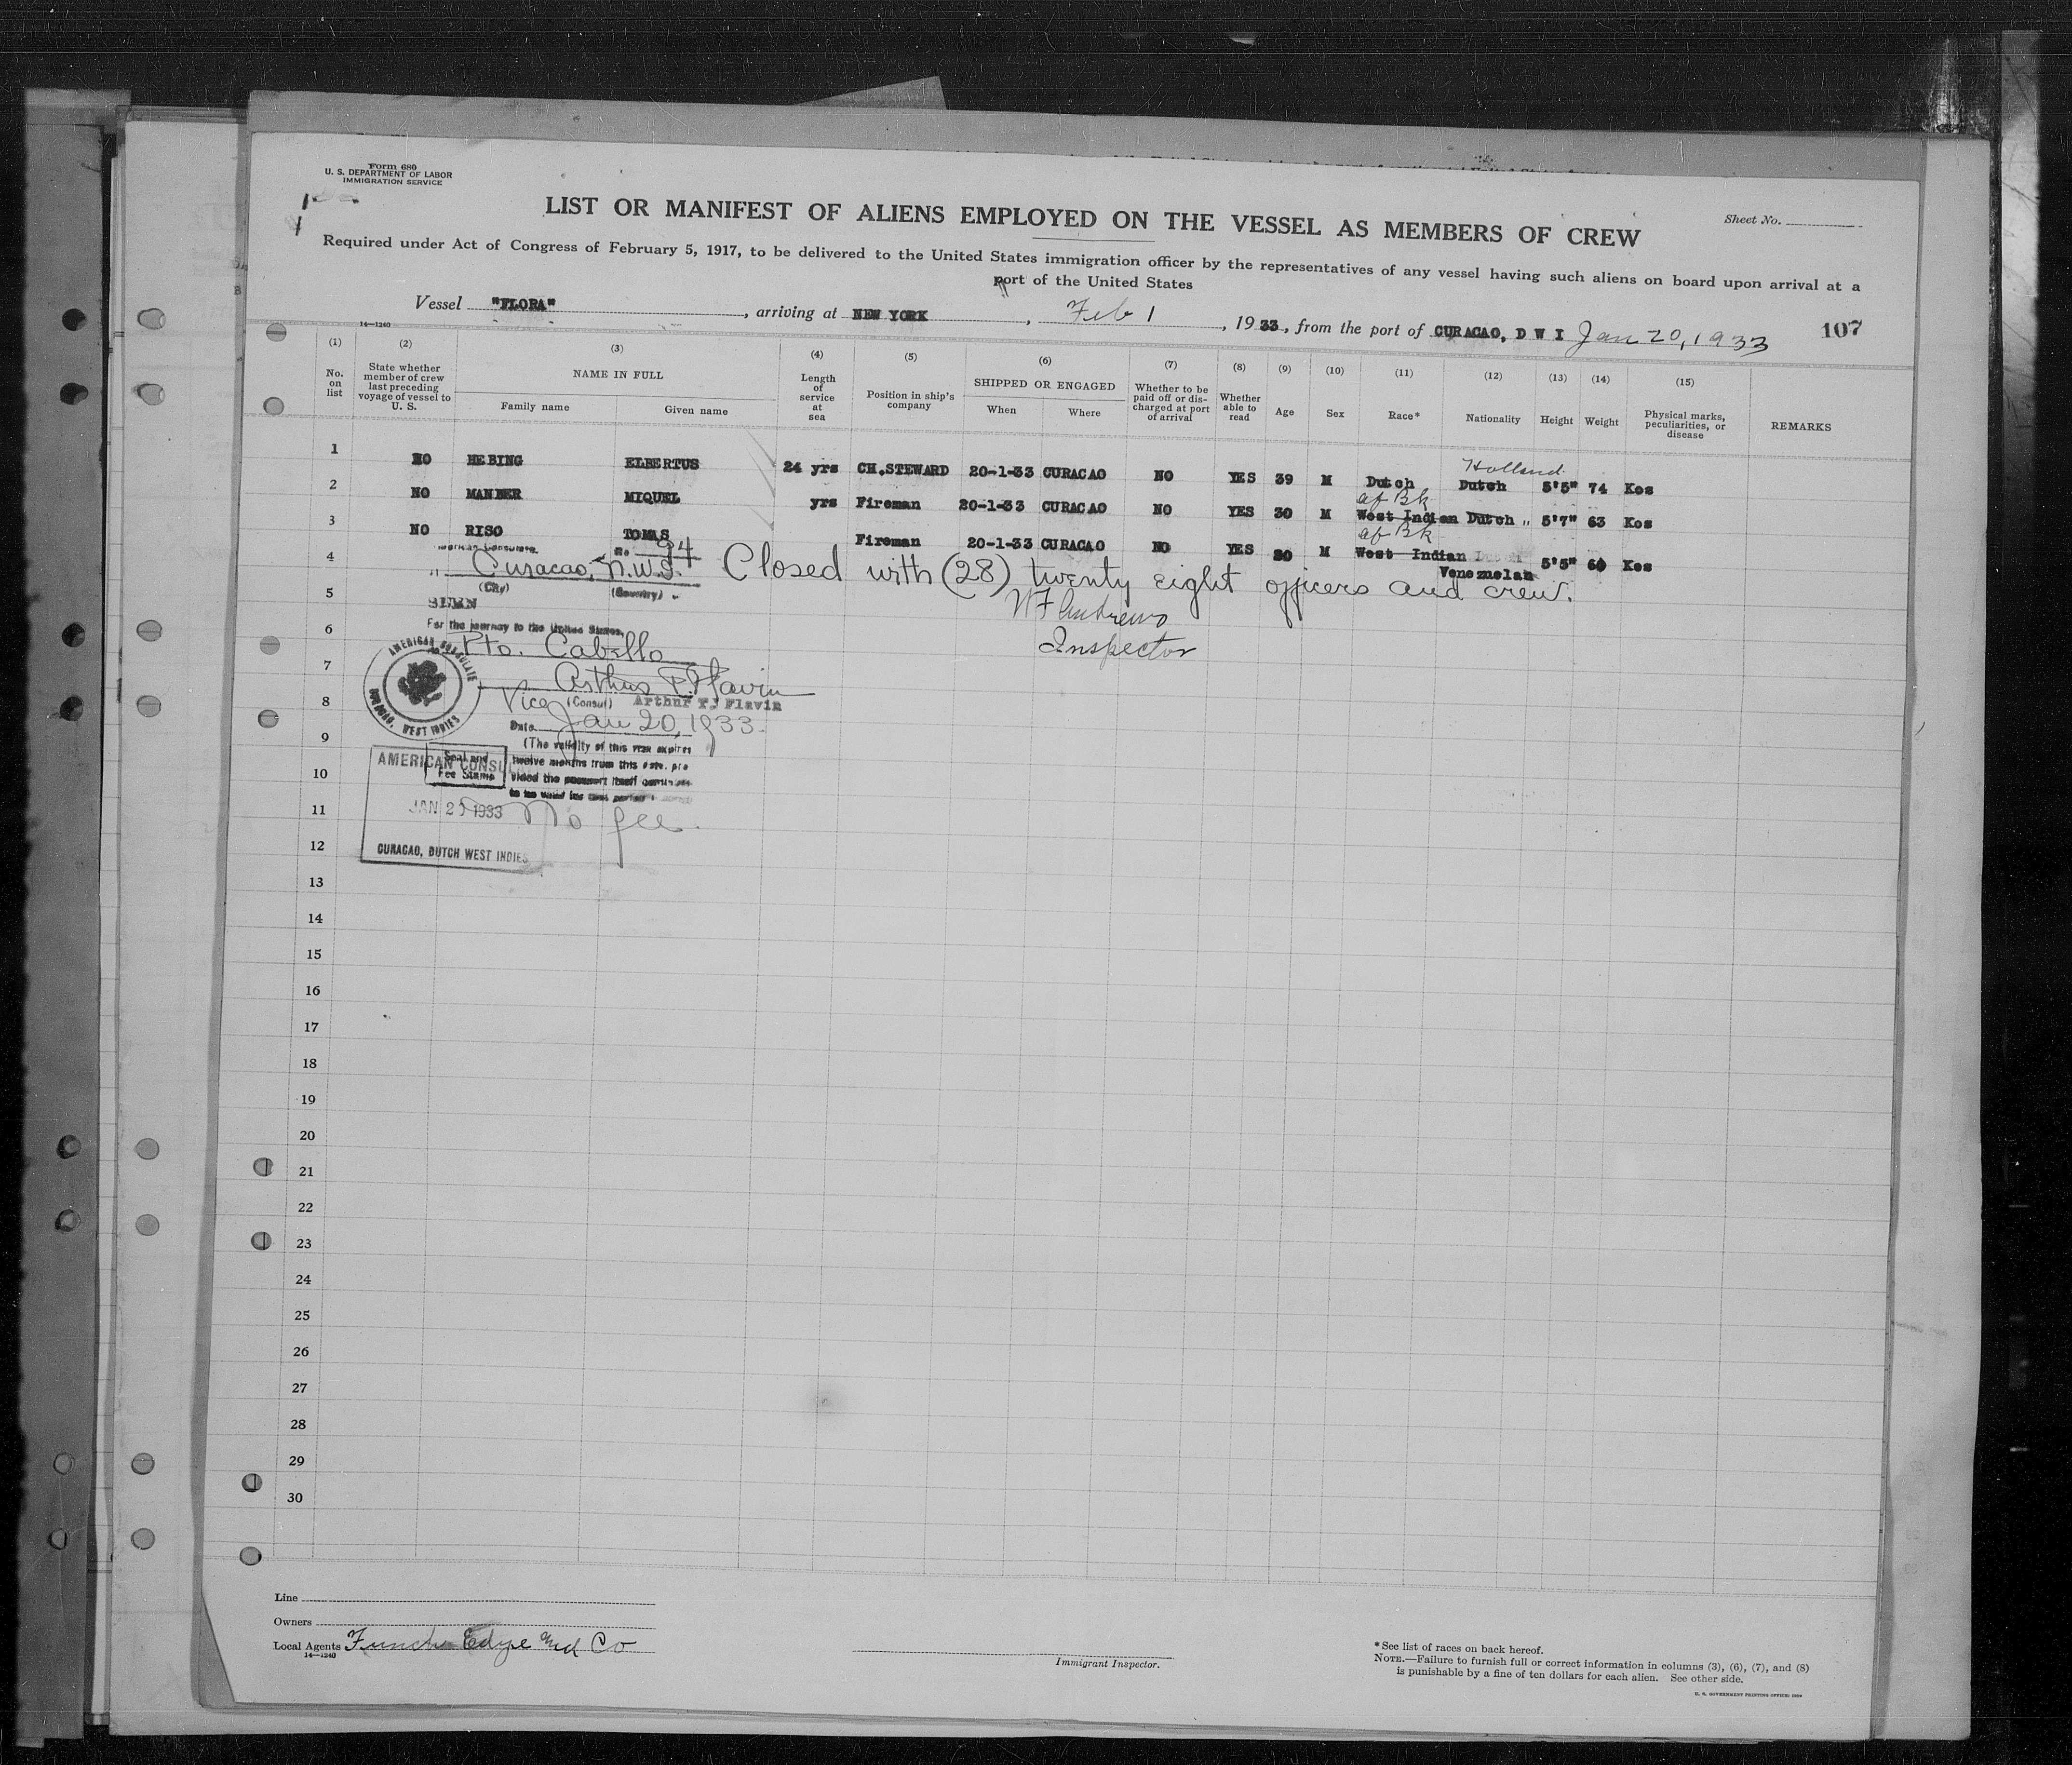 Form 680
U. S. DEPARTMENT OF LABOR
IMMIGRATION SERVICE
LIST OR MANIFEST OF ALIENS EMPLOYED ON THE VESSEL AS MEMBERS OF CREW
Sheet No.
Required under Act of Congress of February 5, 1917, to be delivered to the United States immigration officer by the representatives of any vessel having such aliens on board upon arrival at a
port of the United States
Vessel "FLORA", arriving at NEW YORK, Feb 1, 1933, from the port of CURACAO, D W I Jan 20, 1933 107
14—1240
(1) (2) (3) (4) (5) (6) (7) (8) (9) (10) (11) (12) (13) (14) (15)
No. on list
State whether member of crew last preceding voyage of vessel to U. S.
NAME IN FULL
Family name Given name
Length of service at sea
Position in ship's company
SHIPPED OR ENGAGED
When Where
Whether to be paid off or discharged at port of arrival
Whether able to read
Age
Sex
Race*
Nationality
Height
Weight
Physical marks, peculiarities, or disease
REMARKS
Holland
1 NO HEBING ELBERTUS 24 yrs CH.STEWARD 20-1-33 CURACAO NO YES 39 M Dutch Dutch 5'5" 74 Kos
af Bk
2 NO MANBER MIQUEL yrs Fireman 20-1-33 CURACAO NO YES 30 M West Indian Dutch " 5'7" 63 Kos
af Bk
3 NO RISO TOMAS Fireman 20-1-33 CURACAO NO YES 30 M West Indian Dutch 5'5" 60 Kos
Venezuelan
American Consulate
No 94
4 Curacao, N.W.I.
(City) (Country)
Closed with (28) twenty eight officers and crew.
W F Andrews
Inspector
5 SEEN
For the journey to the United States,
6 Pto. Cabello
AMERICAN CONSULATE
CURACAO, WEST INDIES
7 Arthur T. Flavin
8 Vice (Consul) Arthur T. Flavin
Date Jan 20, 1933.
9 (The validity of this visa expires
twelve months from this date, pro
vided the passport itself continues
to be valid for that period
Seal and
Fee Stamp
10 AMERICAN CONSUL
11 JAN 20 1933
No fee.
12 CURACAO, DUTCH WEST INDIES
13
14
15
16
17
18
19
20
21
22
23
24
25
26
27
28
29
30
Line
Owners
Local Agents Funch Edye and Co
14—1240
Immigrant Inspector.
*See list of races on back hereof.
NOTE.—Failure to furnish full or correct information in columns (3), (6), (7), and (8)
is punishable by a fine of ten dollars for each alien. See other side.